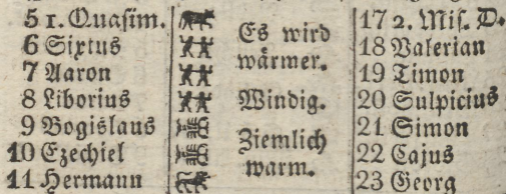 5 1. Quasim. Es wird 17 2. Mis. D.
6 Sixtus wärmer. 18 Valerian
7 Aaron 19 Timon
8 Liborius Windig. 20 Sulpicius
9 Bogislaus Ziemlich 21 Simon
10 Ezechiel warm. 22 Cajus
11 Hermann 23 Georg